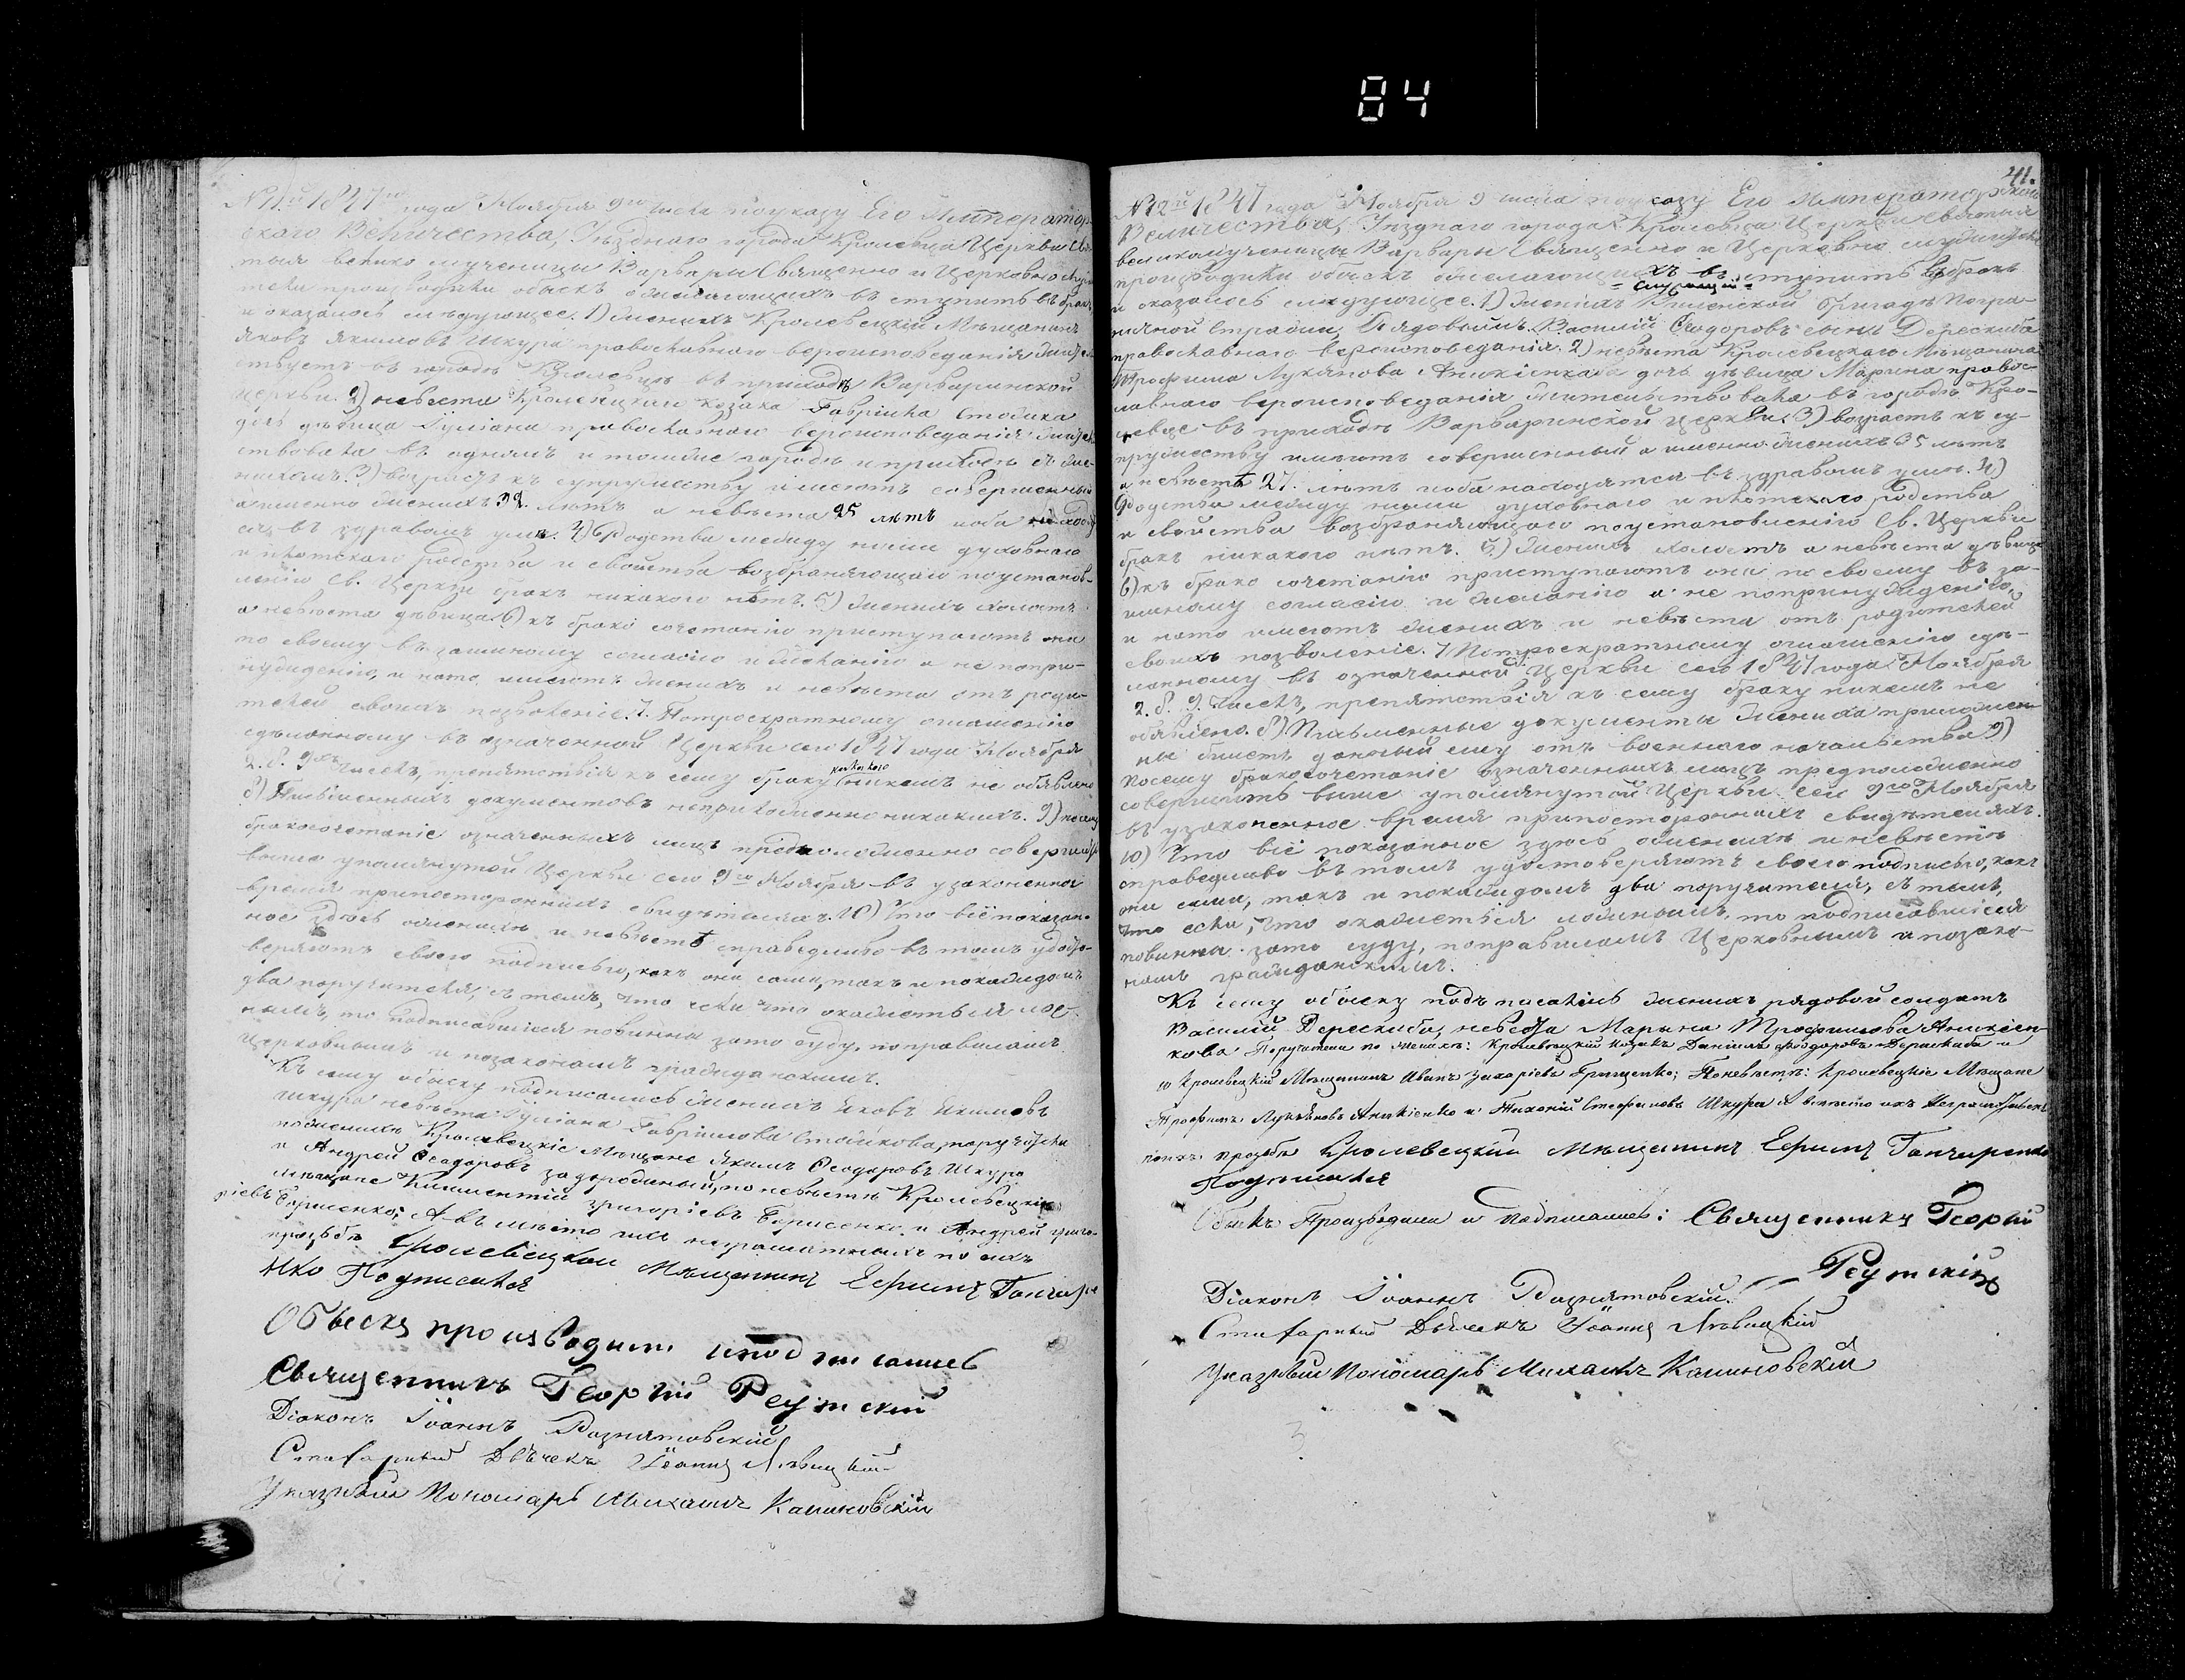 84
№ 11й 1847го года Ноября 9го числа поуказу Его Император-
скаго Величества, Уѣзднаго города Кролевца Церкви Свя-
тыя велико мученицы Варвары Священно и Церковно служи-
тели производили обыскъ ожелающихъ въ ступить въ бракъ
и оказалось слѣдующее. 1) Женихъ Кролевецкій Мѣщанинъ
Яковъ Якимовъ Шкура православнаго вероисповеданія жител-
ствуетъ въ городѣ Кролевцѣ въ приходѣ Варваринской
церкви. 2) невеста Кролевецкаго козака Гавріила Стойка
дочь дѣвица Іуліана православнаго вероисповеданія жител-
ствовала въ одномъ и томже городѣ и приходѣ съ же-
нихомъ. 3) возрастъ къ супружеству имеютъ совершенный
а именно женихъ 32 лѣтъ а невѣста 25 лѣтъ иоба находят
ся въ здравомъ умѣ. 4) Родства между ними духовнаго
и плотскаго родства и свойства возбраняющаго поустанов-
лѣнію Св. Церкви бракъ никакого нѣтъ. 5) Женихъ холостъ
а невѣста дѣвица. 6) къ брако сочетанію приступаютъ они
по своему въ заимному согласію и желанію а не попри-
нужденію, и нато имеютъ женихъ и невѣста отъ роди-
телей своихъ позволеніе. 7. Потроекратному оглашенію
сдѣланному въ означенной Церкви сего 1847 года Ноября
2. 8. 9хъ числъ, препятствія къ сему браку никакого никемъ не объявлено
8) Письменныхъ документовъ неприложенно никакихъ. 9) посему
бракосочетаніе означенныхъ лицъ предположенно совершить
выше упомянутой Церкви сего 9го Ноября въ узаконенное
время припостороннихъ свидѣтеляхъ. 10) Что всё показан-
ное здѣсь ожених и невѣстѣ справедливо въ томъ удосто-
веряютъ своею подписью, какъ они сами, такъ и покаждомъ
два поручителя, съ темъ, что если что окажется лож-
нымъ, то подписавшіися повинны зато суду, поправиламъ
Церковнымъ и позаконамъ гражданскимъ.
Къ сему обыску подписались Женихъ Яковъ Якимовъ
Шкура невѣста Іуліана Гавриилова Стойкова, поручители
поженихѣ Кролевецкіе Мѣщане Якимъ Ѳеодоровъ Шкура
и Андрей Ѳеодоровъ Загородный, по невѣстѣ Кролевецкіе
мѣщане Климентій Григоріевъ Борисенко и Андрей Григо-
ріевъ Борисенко; А въ мѣсто ихъ неграмотныхъ по ихъ
прозьбѣ Кролевецкой Мѣщанинъ Ефимъ Гончаре
нко Подписался
Объескъ производили иподписались
Священникъ Георгій Реутскій
Діаконъ Іоаннъ Рознатовскій
Стихарный Дьячекъ Іоаннъ Левицкій
Указный Пономарь Михаилъ Калиновскій
41.
№ 12й 1847 года Ноября 9 числа поуказу Его Императорскаго
Величества, Уезднаго города Кролевца Церкви Святыя
великомученицы Варвары Священно и Церковно служители
производили обыскъ ожелающихъ въ ступить въ бракъ
и оказалось слѣдующее. 1) Женихъ служащій Виленской бригадѣ погра-
ничной Стражи Рядовымъ Василій Ѳеодоровъ сынъ Дерескиба
православнаго вероисповеданія. 2) невѣста Кролевецкаго Мѣщанина
Трофима Лукянова Аникіенкова дочь дѣвица Марина правос-
лавнаго вероисповеданія жительствовала въ городѣ Кро-
левце въ приходѣ Варваринской Церкви. 3) возрастъ къ су-
пружеству имеютъ совершенный а именно женихъ 35 лѣтъ
а невѣста 27. лѣтъ иоба находятся въ здравомъ умѣ. 4)
Родства между ними духовнаго и плотскаго родства
и свойства возбраняющаго поустановленію Св. Церкви
бракъ никакого нѣтъ. 5.) Женихъ холостъ а невѣста дѣвица
6) къ брако сочетанію приступаютъ они по своему въ за-
имному согласію и желанію а не попринужденію,
и нато имеютъ женихъ и невѣста отъ родителей
своихъ позволеніе. 7 Потроекратному оглашенію сдѣ-
ланному въ означенной Церкви сего 1847 года Ноября
2. 8. 9. Числъ, препятствія къ сему браку никемъ не
объявлено. 8) Письменные документы Жениха приложен-
ны билетъ данный ему отъ военнаго начальства 9)
посему бракосочетаніе означенныхъ лицъ предположенно
совершить выше упомянутой Церкви сего 9го Ноября
въ узаконенное время припостороннихъ свидѣтеляхъ.
10) Что всё показанное здѣсь ожених и невѣстѣ
справедливо въ томъ удостоверяютъ своею подписью, какъ
они сами, такъ и покаждомъ два поручителя, съ темъ,
что если, что окажется ложнымъ, то подписавшіися
повинны зато суду, поправиламъ Церковнымъ и позако-
намъ гражданскимъ.
Къ сему обыску подъписались Женихъ рядовой солдатъ
Василій Дерескиба, невѣста Марына Трофимова Аникіен-
кова Поручители по женихѣ: Кролевецкій козакъ Даніилъ Ѳеодоровъ Дерискиба и
Кролевецкій Мѣщанинъ Иванъ Захаріевъ Грищенко; Поневѣстѣ: Кролевецкіе Мѣщане
Трофимъ Лукьяновъ Аникіенко и Тихоній Стефановъ Шкура А вмѣсто ихъ Неграмотныхъ
поихъ прозьбѣ Кролевецкій Мѣщанинъ Ефимъ Гончаренко
Подписался
Обыскъ Производили и подписались: Священникъ Георгій
Реутскій
Діаконъ Іоаннъ Рознатовскій
Стихарный Дьячекъ Іоаннъ Левицкій
Указный Пономарь Михаилъ Калиновскій